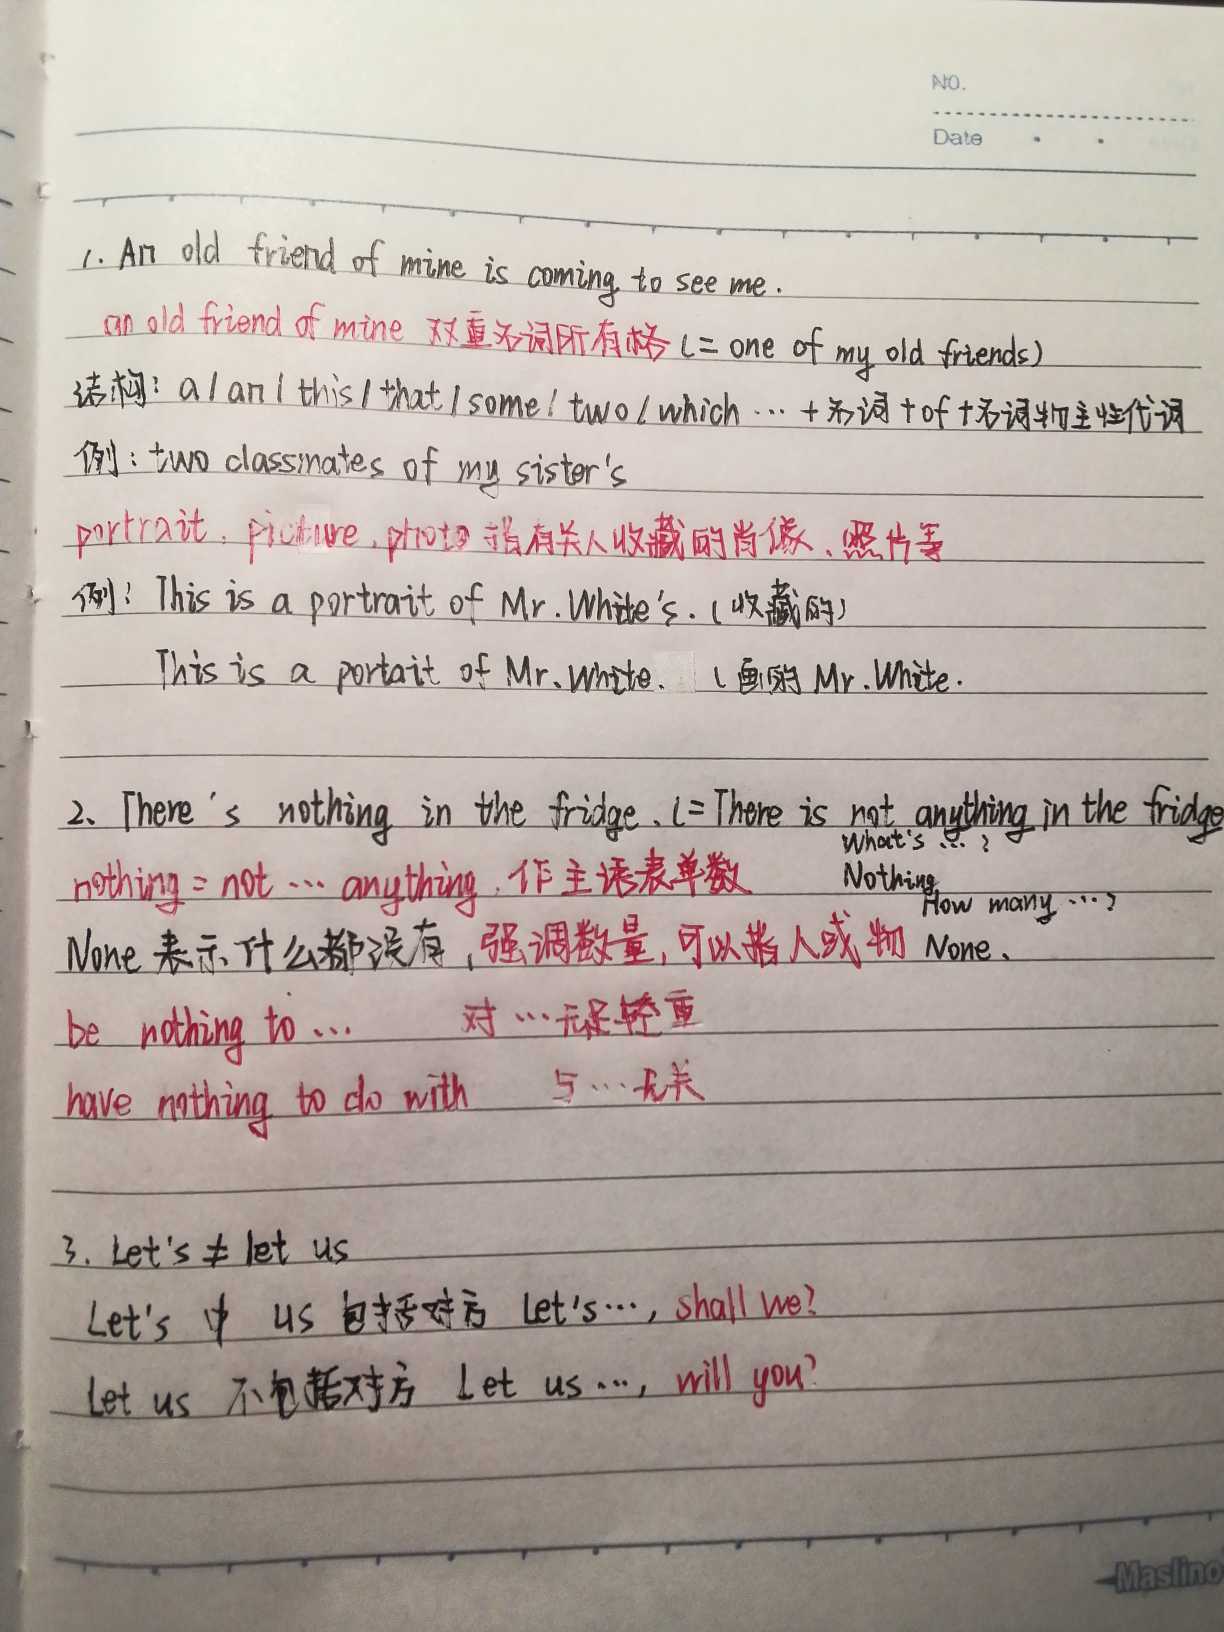 NO.
Date
1. An old friend of mine is coming to see me.
an old friend of mine 双重名词所有格 (= one of my old friends)
结构: a / an / this / that / some / two / which … + 名词 + of + 名词物主性代词
例: two classmates of my sister's
portrait, picture, photo 指有关人收藏的肖像、照片等
例: This is a portrait of Mr. White's. (收藏的)
This is a portait of Mr. White. (画的 Mr. White.
2、There's nothing in the fridge. (= There is not anything in the fridge
What's …?
nothing = not … anything, 作主语表单数 Nothing
How many …?
None 表示什么都没有, 强调数量, 可以指人或物 None.
be nothing to … 对 … 无足轻重
have nothing to do with 与 … 无关
3. Let's ≠ let us
Let's 中 us 包括对方 Let's …, shall we?
Let us 不包括对方 Let us …, will you?
Maslino